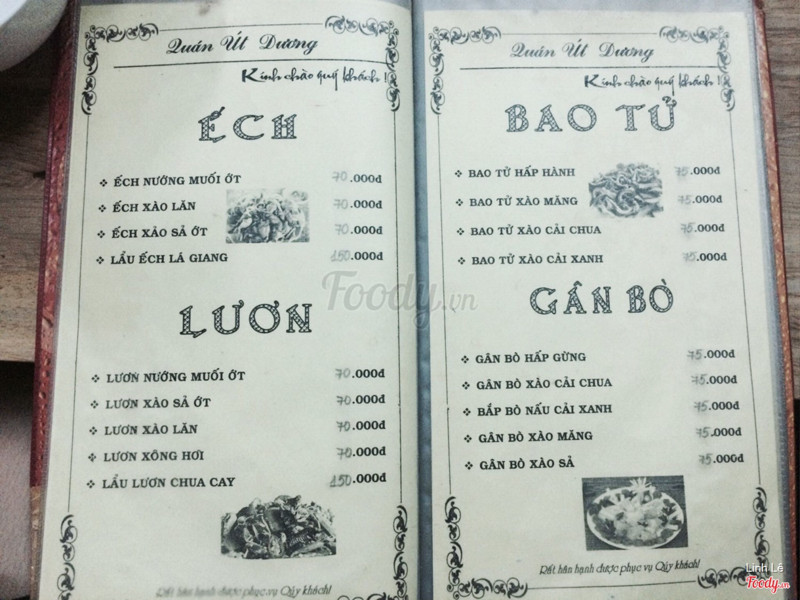 Quán Út Dương
Kính chào quý khách!
ẾCH
❖ ẾCH NƯỚNG MUỐI ỚT 70.000đ
❖ ẾCH XÀO LĂN 70.000đ
❖ ẾCH XÀO SẢ ỚT 70.000đ
❖ LẨU ẾCH LÁ GIANG 150.000đ
LƯƠN
❖ LƯƠN NƯỚNG MUỐI ỚT 70.000đ
❖ LƯƠN XÀO SẢ ỚT 70.000đ
❖ LƯƠN XÀO LĂN 70.000đ
❖ LƯƠN XÔNG HƠI 70.000đ
❖ LẨU LƯƠN CHUA CAY 150.000đ
Rất hân hạnh được phục vụ Qúy khách!
Quán Út Dương
Kính chào quý khách!
BAO TỬ
❖ BAO TỬ HẤP HÀNH 75.000đ
❖ BAO TỬ XÀO MĂNG 75.000đ
❖ BAO TỬ XÀO CẢI CHUA 75.000đ
❖ BAO TỬ XÀO CẢI XANH 75.000đ
GÂN BÒ
❖ GÂN BÒ HẤP GỪNG 75.000đ
❖ GÂN BÒ XÀO CẢI CHUA 75.000đ
❖ BẮP BÒ NẤU CẢI XANH 75.000đ
❖ GÂN BÒ XÀO MĂNG 75.000đ
❖ GÂN BÒ XÀO SẢ 75.000đ
Rất hân hạnh được phục vụ Qúy khách!
Foody.vn
Linh Lê
Foody.vn